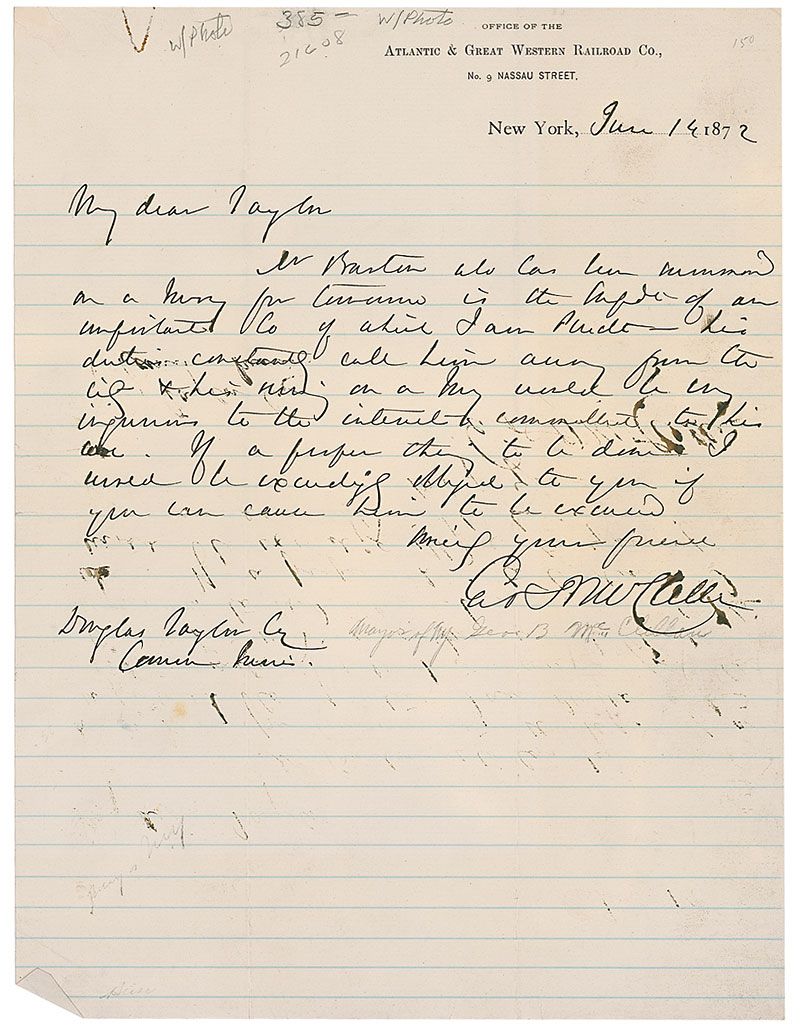 W/Photo 385- W/Photo
21608
150
OFFICE OF THE
ATLANTIC & GREAT WESTERN RAILROAD CO.,
No. 9 NASSAU STREET.
New York, June 14 1872
My dear Taylor
Mr Barton who has been summoned
on a Jury for tomorrow is the of an
important Co of which I am Presdt - his
duties constantly call him away from the
city & his serving on a Jury would be very
injurious to the interests committed to his
care. If a proper thing to be done I
would be exceedingly obliged to you if
you can cause him to be excused
your friend
Geo B McClellan
Douglas Taylor Esq
Comr Juries.
Mayor of NY Geo. B. McClellan